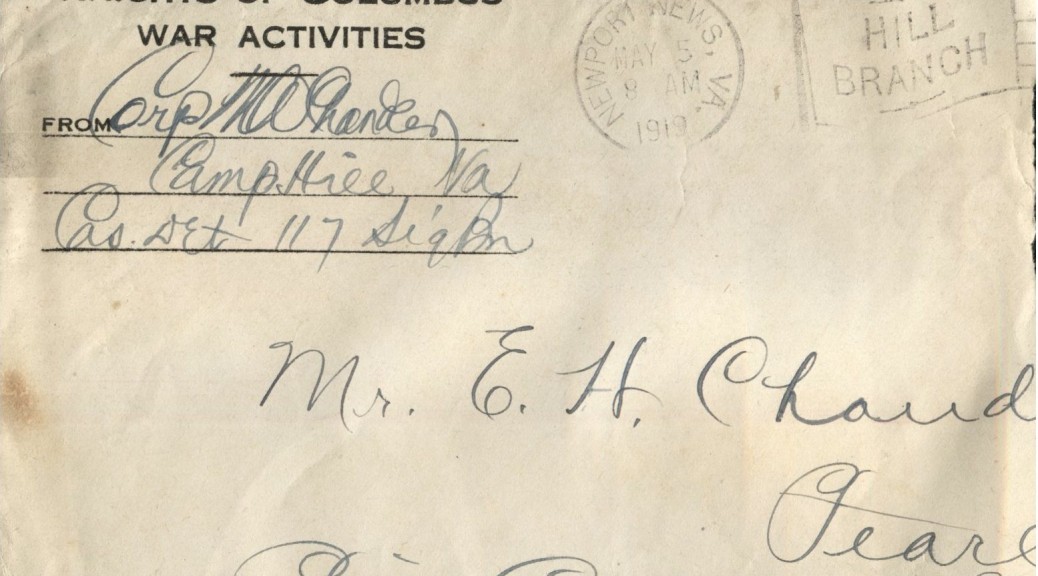 KNIGHTS OF COLUMBUS
WAR ACTIVITIES
FROM Corp M W Chandler
Camp Hill Va
Cas. Det 117 Sig Bn
NEWPORT NEWS, VA.
MAY 5
8 AM
1919
HILL
BRANCH
Mr. E. H. Chand
Pearl